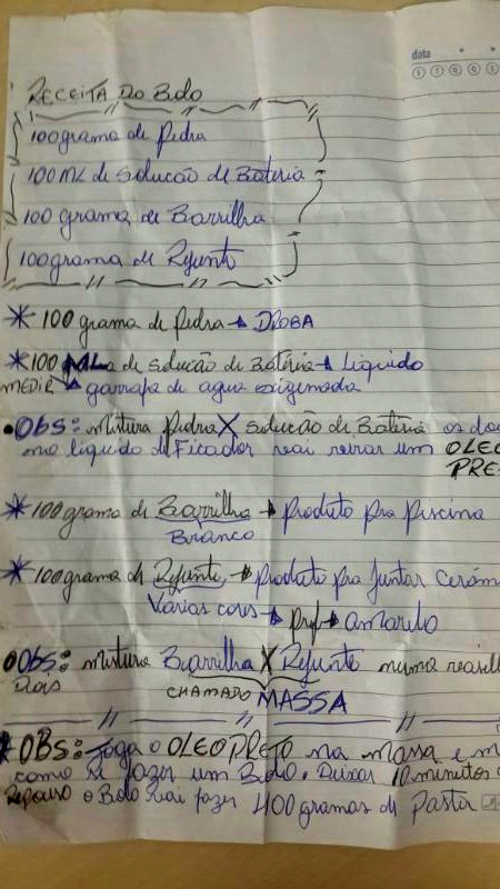 data
RECEITA DO BOLO
100grama de Pedra
100 ML de Solucão de Bateria
100 grama de Barrilha
100grama de Rejunte
* 100 grama de Pedra → DROGA
* 100 ML de Solucão de Bateria → Liquido
MEDIR garrafa de agua oxigenada
• OBS: mistura Pedra X Solucão de Bateria os
liquido Ficador vai um OLEO
PRE
* 100 grama de Barrilha → Produto pra Piscina
Branco
* 100grama de Rejunte → Produto pra Juntar
Varias cores → → amarelo
• Obs: mistura Barrilha X Rejunte numa
CHAMADO MASSA
* OBS: Joga o OLEO PRETO na massa e
como se fazer um Bolo. Deixar 10 minutos
Repouso o Bolo Vai fazer 400gramas de Pasta